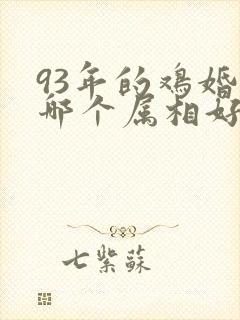 93年的鸡婚
哪个属相好
七紫蘇